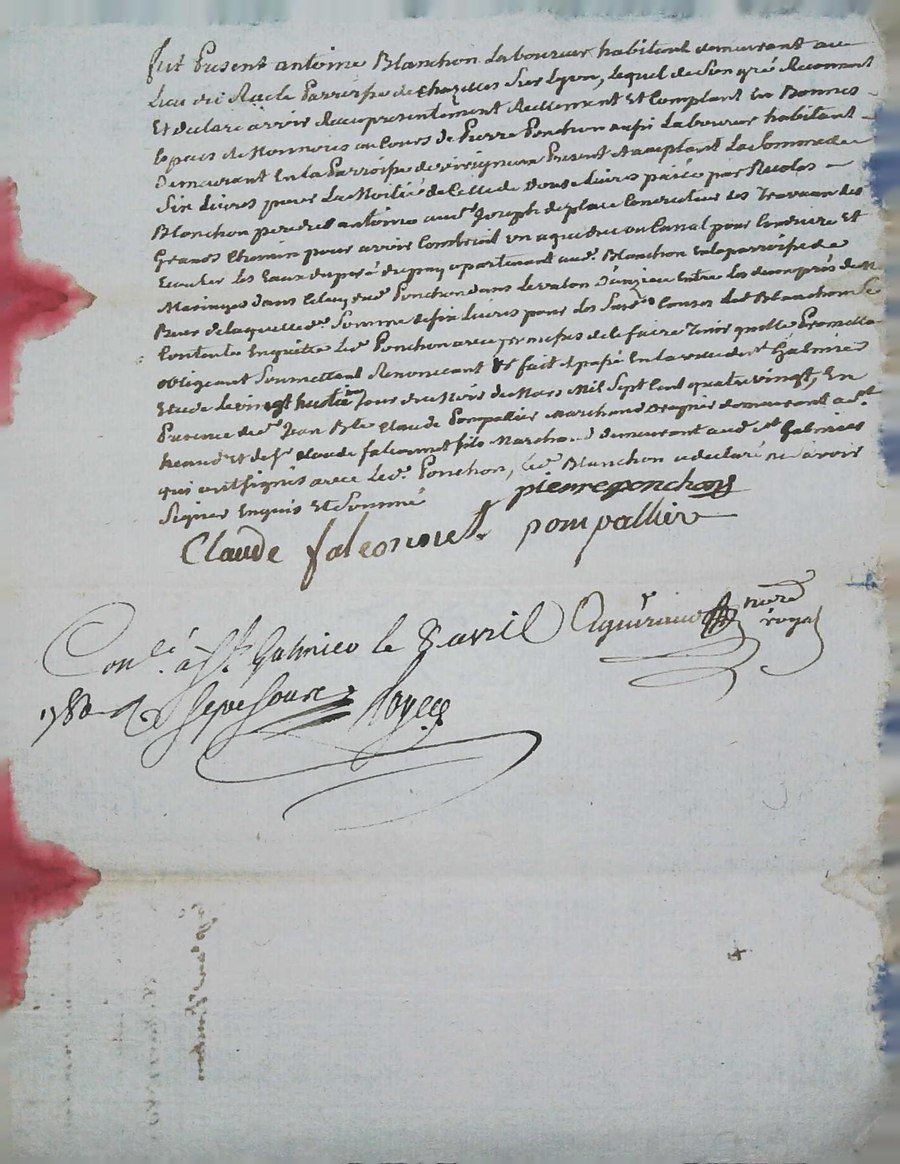 fut Present antoine Blanchon Laboureur habitant demeurant au
Lieu de la Parroisse de Chazelles Sur Lyon, lequel de Son gré Reconnait
Et declare avoir Receu presentement Reellement Et Comptant En Bonnes
Especes de Monnoies au Cours de Pierre Ponchon aussi Laboureur habitant
Demeurant En la Parroisse de virigneux Present acceptant La Somme de
Six Livres pour La Moitié de Celle de Douze Livres païée par Nicolas
Blanchon pere dud antoine aud Sr Joseph de place Conducteur des Travaux des
Grands Chemin pour avoir Construit un aqueduc ou Canal pour Conduire Et
Ecouler Les Eaux du pré apartenant aud Blanchon En la parroisse de
Maringes dans Celuy dud Ponchon dans le valon Entre Les deux prés
De laquelle de Somme de six Livres pour Les Susd Causes Led Blanchon Se
Contente En quitte Led Ponchon avec promesses de le faire Tenir quitte Promettant
obligeant Soumettant Renonceant &c fait et passé En la ville de St Galmier
Etude Le vingt huitie Jour du Mois de Mars Mil Sept Cent quatre vingt, En
Presence de Sr Jean Bte Claude Pompallier Marchand Drapier demeurant a St
heand Et de Sr Claude falconnet fils Marchand demeurant aud St Galmier
qui ont signés avec Led Ponchon, Led Blanchon a declaré ne Savoir
Signer Enquis Et Sommé
pierre ponchon
Claude falconnet. pompallier
nore
royal
Conlé à St Galmier le 8 avril
1780 Sept Sous